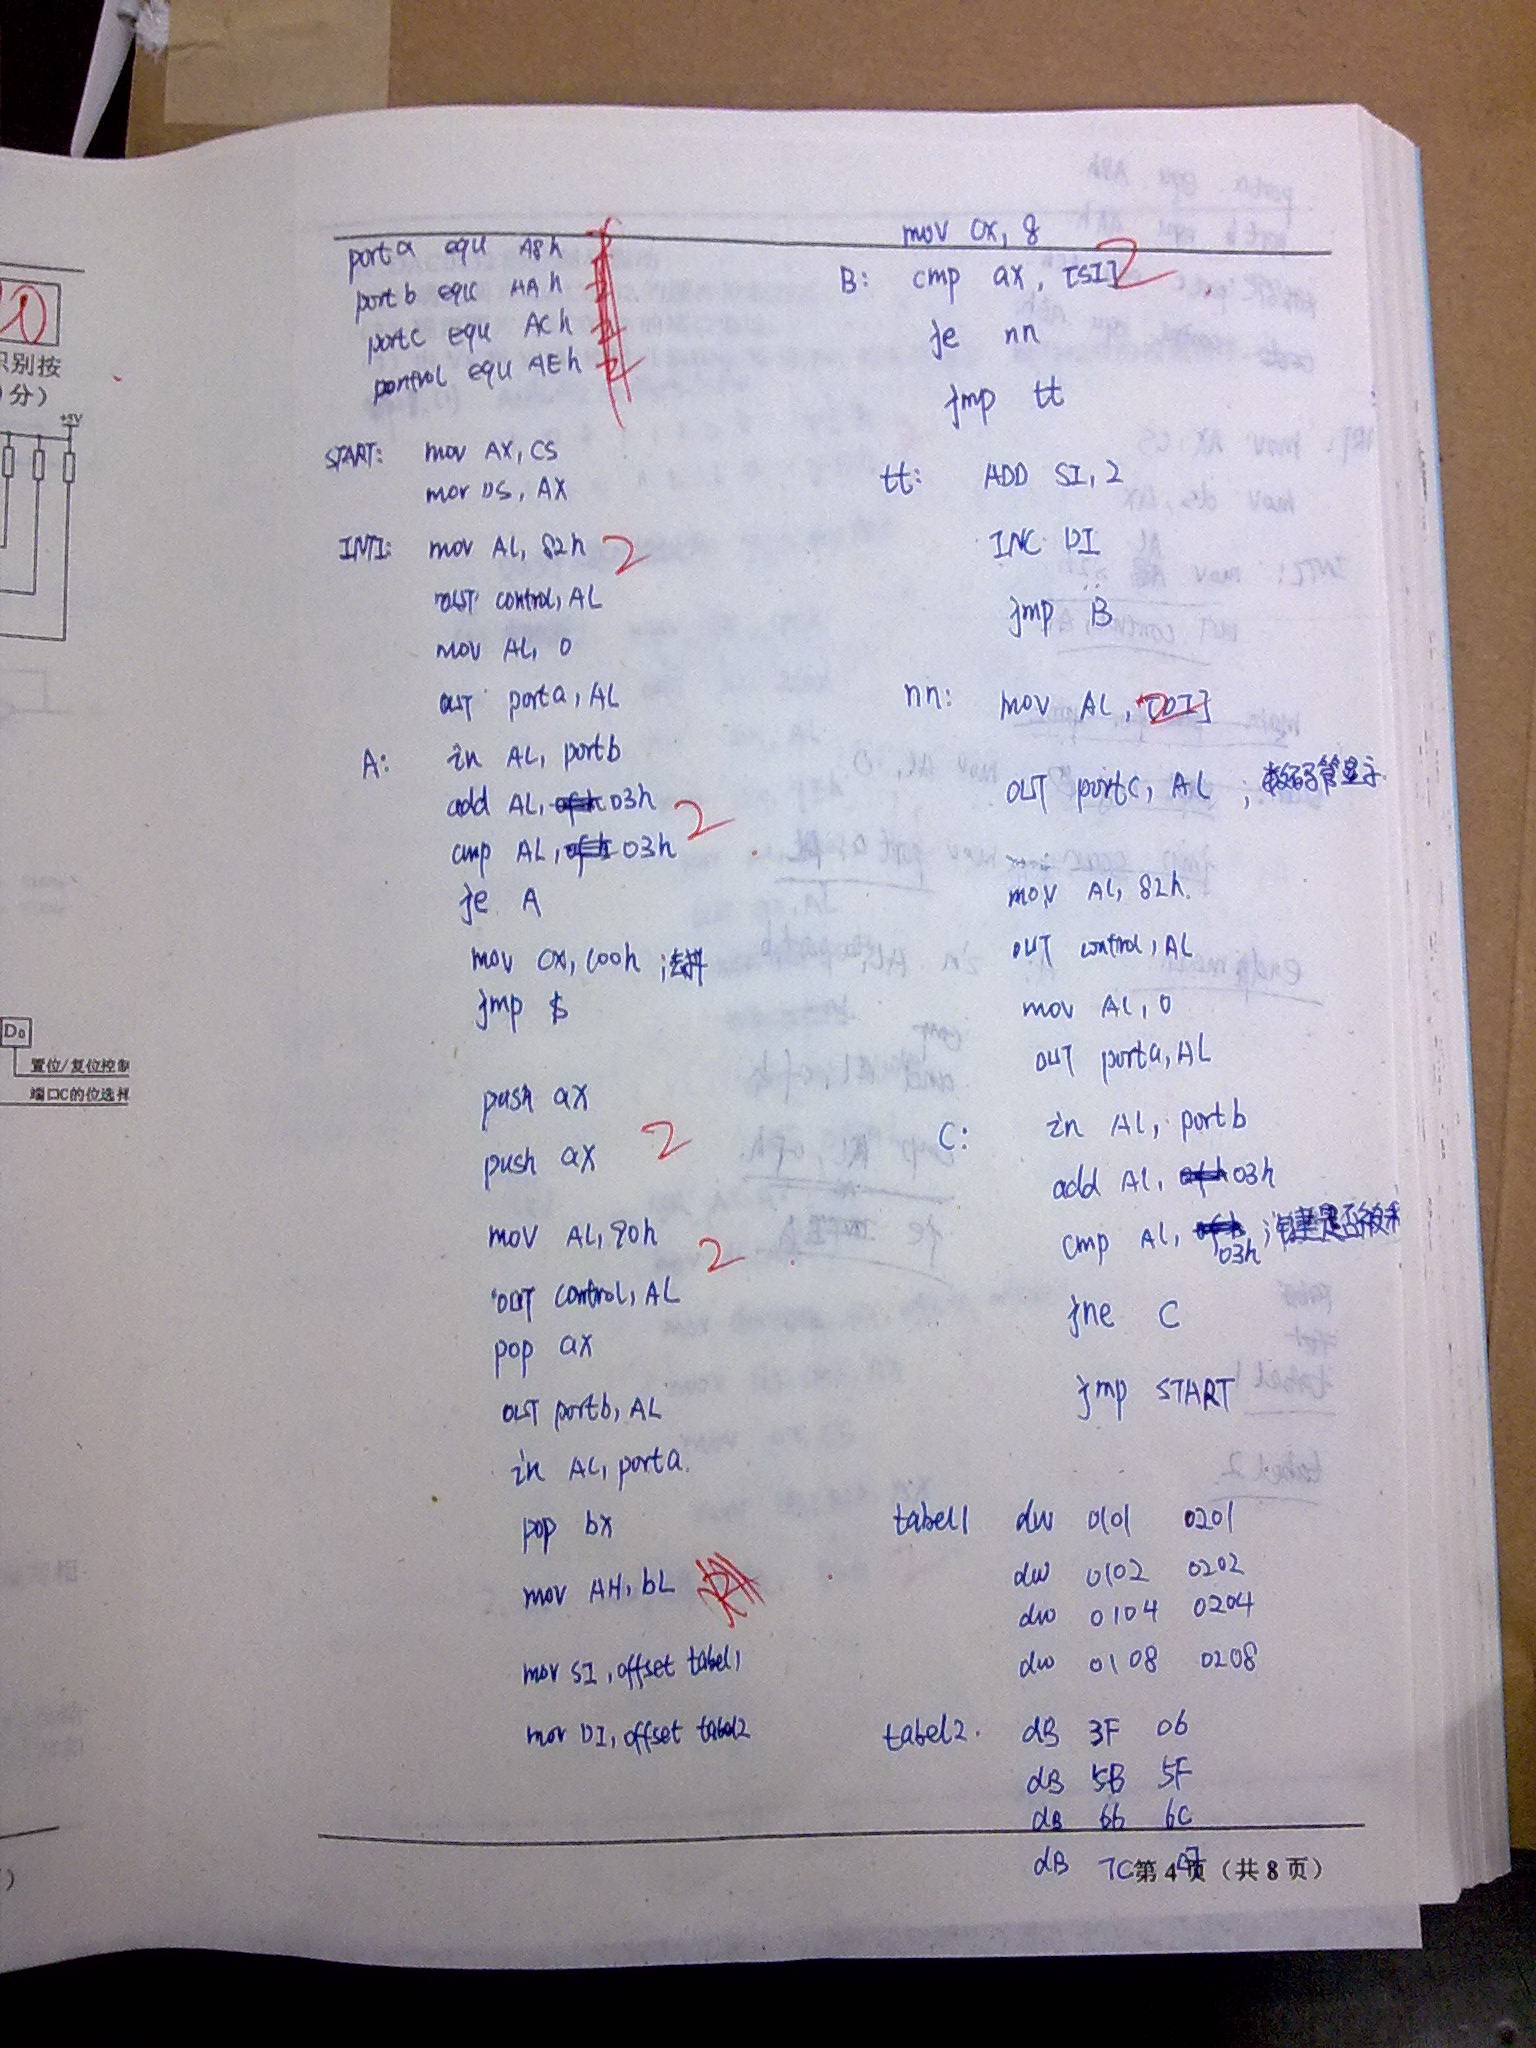 识别按
分）
+5V
D0
置位/复位控制
端口C的位选择
porta equ A8h
portb equ AAh
portc equ ACh
pontrol equ AEh
START: mov AX, CS
mov DS, AX
INTI: mov AL, 82h 2
OUT control, AL
mov AL, 0
OUT porta, AL
A: in AL, portb
add AL, 03h 2
cmp AL, 03h
je A
mov CX, 600h ;去抖
jmp $
push ax
push ax 2
mov AL, 90h 2
OUT control, AL
pop ax
OUT portb, AL
in AL, porta.
pop bx
mov AH, bL
mov SI, offset tabel1
mov DI, offset tabel2
mov CX, 8
B: cmp ax, [SI] 2
je nn
jmp tt
tt: ADD SI, 2
INC DI
jmp B
nn: mov AL, [DI] 2
OUT portc, AL ; 数码管显示
mov AL, 82h.
OUT control, AL
mov AL, 0
OUT porta, AL
C: in AL, portb
add AL, 03h
cmp AL, 03h ; 是否被
jne C
jmp START
tabel1 dw 0101 0201
dw 0102 0202
dw 0104 0204
dw 0108 0208
tabel2. dB 3F 06
dB 5B 5F
dB 66 6C
dB 7C 07
第 4 页（共 8 页）